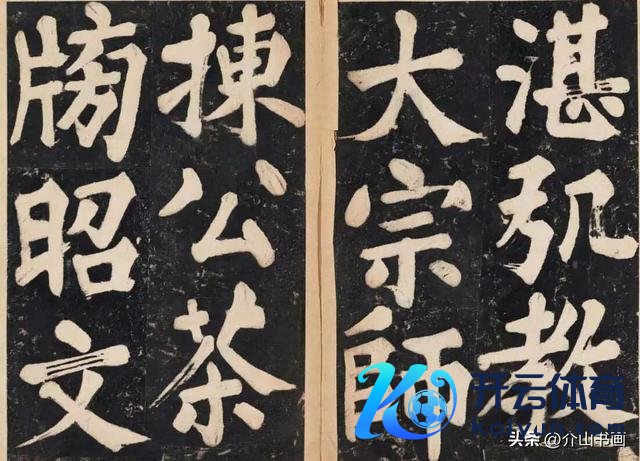 湛弘教
大宗師
揀公茶
牓昭文
开云体育
头条 @介山书画